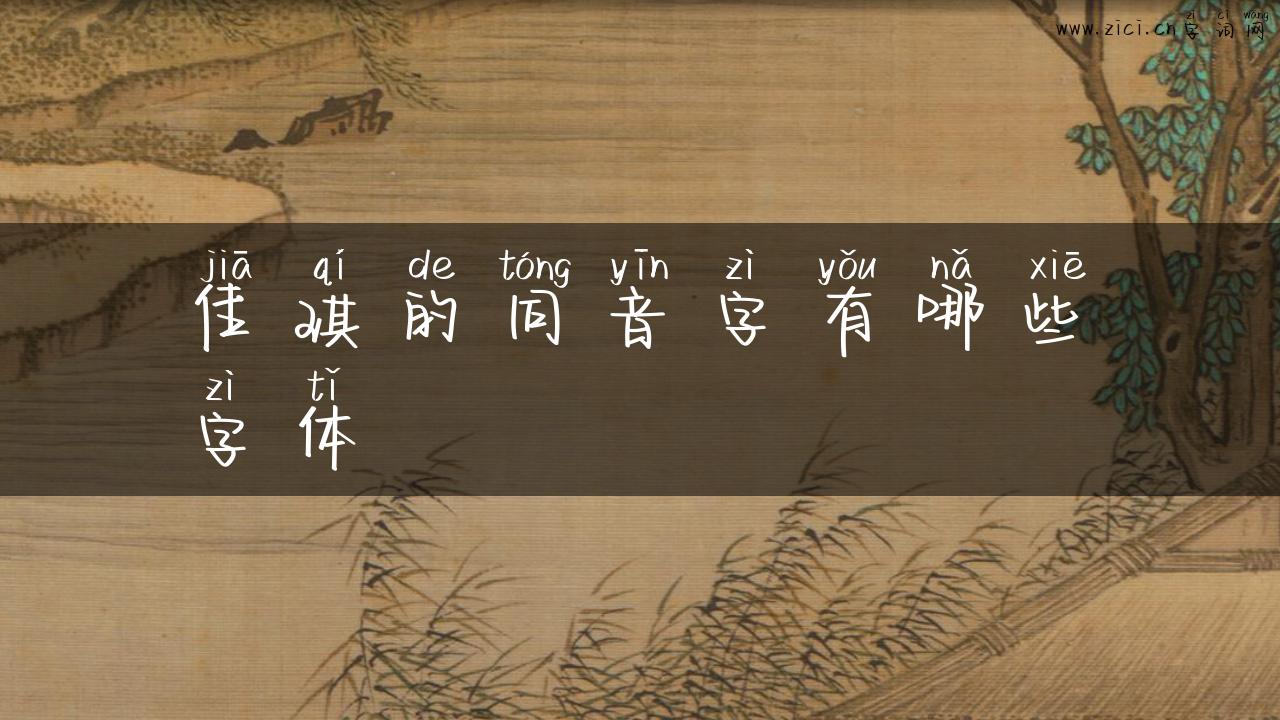 zì cí wǎng
www.zici.cn字词网
jiā qí de tóng yīn zì yǒu nǎ xiē
佳祺的同音字有哪些
zì tǐ
字体